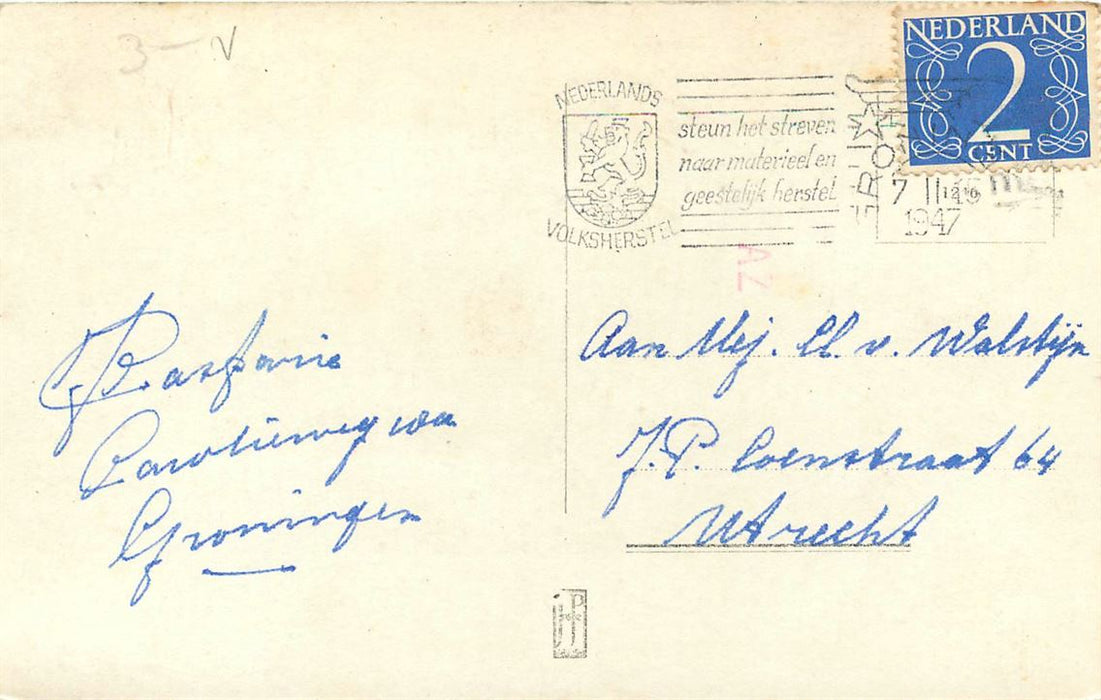 3 - V
NEDERLAND
2
CENT
NEDERLANDS
VOLKSHERSTEL
steun het streven
naar materieel en
geestelijk herstel
GRON
7 II
1947
AZ
Groningen
Aan Mej. v. Walstijn
J.P. Coenstraat 64
Utrecht